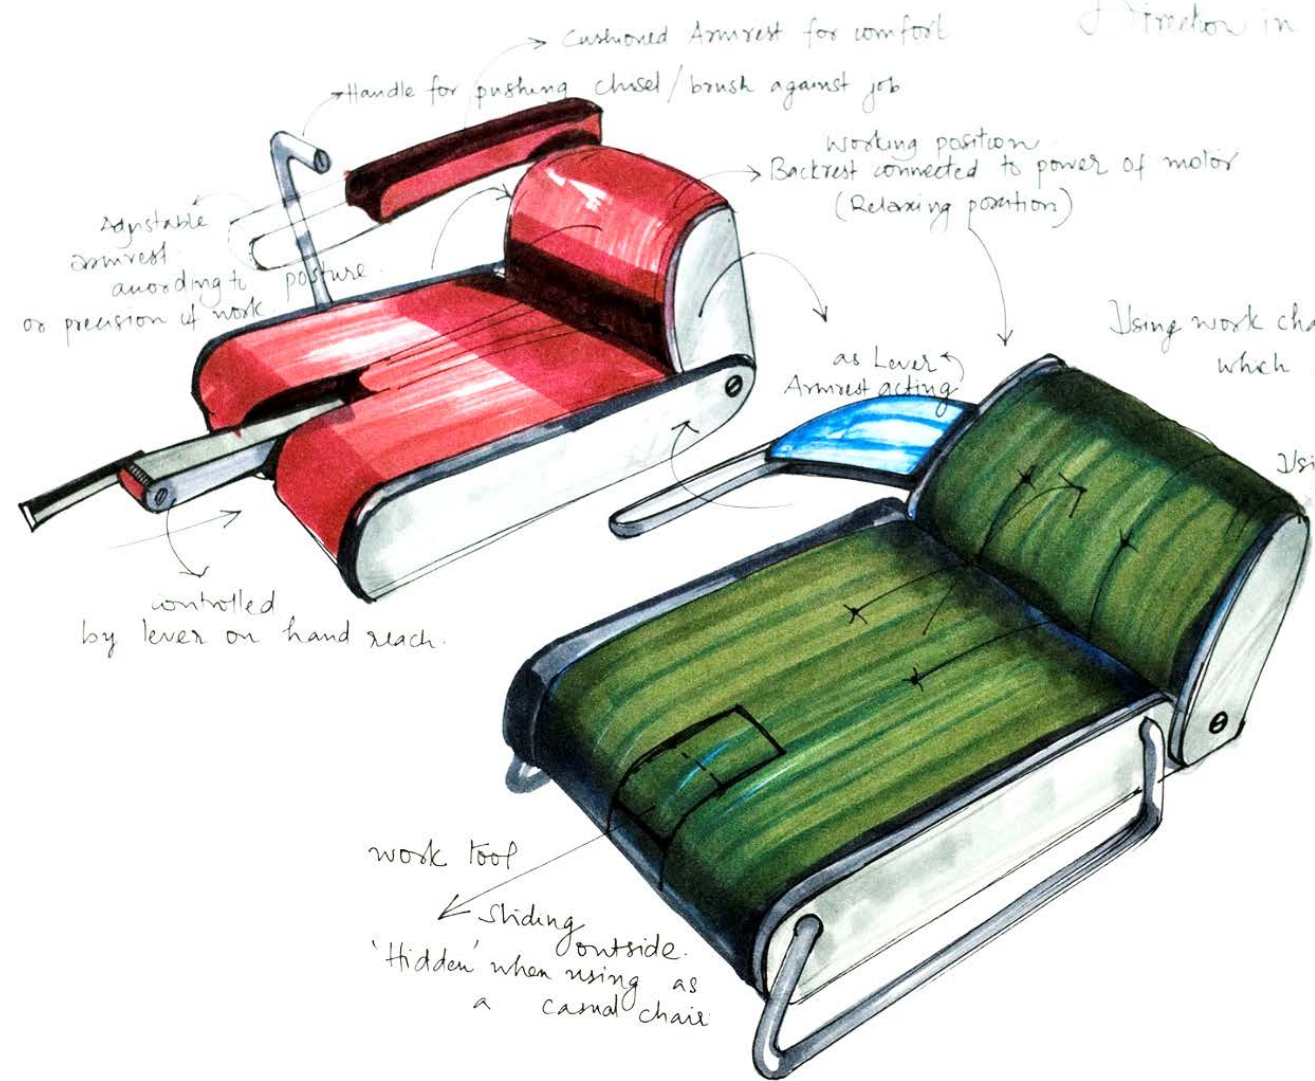 Direction in
Cushioned Armrest for comfort
Handle for pushing chisel / brush against job
Working position
Backrest connected to power of motor
(Relaxing position)
Adjustable
armrest
according to posture
or precision of work.
Using work cha
which
as Lever
Armrest acting
Usi
controlled
by lever on hand reach.
work tool
Sliding
outside.
'Hidden' when using as
a casual chair